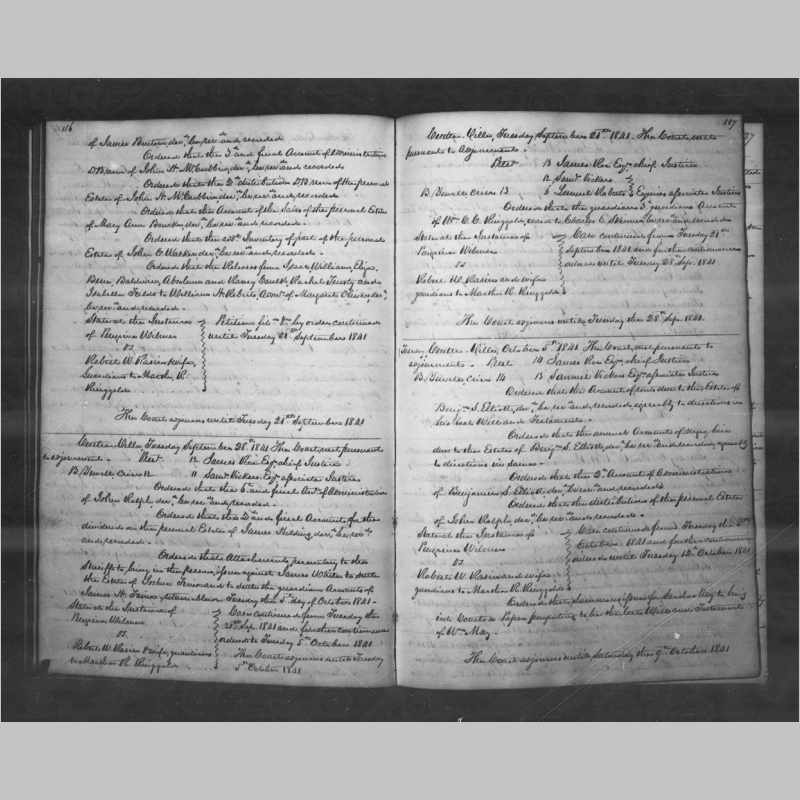 116
of James Burton, decd. be, recd. and recorded
Ordered that the 3d and final Account of Administration
D.B. non of John H. McCubbin, decd. be, recd. and recorded
Ordered that the 2d distribution D.B. non of the personal
Estate of John H. McCubbin decd. be, recd. and recorded
Ordered that the Account of the Sales of the personal Estate
of Mary Ann decd. be, recd. and recorded.
Ordered that the Inventory of part of the personal
Estate of John C. decd. be, recd. and recorded.
Ordered that the Releases from Isaac William, Eliza,
Ben, Baldwin, Absolum and Raney Gault, Rachel Trusty and
Isabella Fields to William H. Roberts, Admr. of Margaret
be, recd. and recorded.
State at the Instance
of Peregrine Wilmer
vs
Robert W. Rasin & wife,
Guardians to Martha R.
Ringgold
Petition filed &c. by order continued
until Tuesday 21st September 1841
The Court adjourns until Tuesday 21st September 1841
Centre Ville, Tuesday September 28th 1841 The Court met pursuant
to adjournment. Prest 12 James Roe Esqr. chief Justice
B. Downes, Crier 12 11 Saml. Vickers Esqr. associate Justice
Ordered that the 6th and final Acct. of Administration
of John Ralph, decd. be, recd. and recorded.
Ordered that the 2d and final Account, for the
dividend on the personal Estate of James Hidding, decd. be, recd.
and recorded.
Ordered that Attachments, peremtory to the
Sheriff to bring in the person, issue against James White to settle
the Estate of and to settle the guardian Accounts of
James H. a Minor Tuesday the 5th day of October 1841.
State at the Instance of
Peregrine Wilmer
vs.
Robert W. Rasin & wife, guardians
to Martha R. Ringgold
Case continued from Tuesday the
21st Sep. 1841 and further continuance
ordered to Tuesday 5th October 1841
The Court adjourns until Tuesday
5th October 1841
117
Centre Ville, Tuesday September 21st 1841. The Court met
pursuant to adjournment.
Prest 13 James Roe Esqr. chief Justice
12 Saml. Vickers
B. Downes crier 13 6 Lemuel Roberts Esquires associate Justices
Ordered that the guardians 3d guardian Account
of Wm. C. C. Ringgold, to Charles C. be, recd. and recorded
State at the Instance of
Peregrine Wilmer
vs
Robert W. Rasin and wife
guardians to Martha R. Ringgold
Case continued from Tuesday 21st
September 1841 and further continuance
ordered until Tuesday 28th Sep. 1841
The Court adjourns until Tuesday the 28th Sep. 1841
Centre Ville, October 5th 1841 The Court met pursuant to
adjournment. Prest 14 James Roe Esqr. chief Justice
B. Downes, Crier 14 13 Samuel Vickers Esqr. associate Justice
Ordered that the Account of debts due to the Estate of
Benjn. S. Elliott, decd. be, recd. and recorded, agreeably to directions in
his last Will and Testament.
Ordered that the annual Accounts of
due to the Estate of Benjn. S. Elliott, decd. be, recd. and recorded, agreeably
to directions in same.
Ordered that the 2d Account of Administration
of Benjamin S. Elliott, decd. be, recd. and recorded
Ordered that the distribution of the personal Estate
of John Ralph, decd. be, recd. and recorded.
State at the Instance of
Peregrine Wilmer
vs
Robert W. Rasin and wife
guardians to Martha R. Ringgold
Case continued from Tuesday the 5th
October 1841 and further continuance
ordered until Tuesday 12th October 1841
Ordered that Summons issue for May to bring
into Court a paper purporting to be the last Will and Testament
of Wm. May.
The Court adjourns until Saturday the 9th October 1841